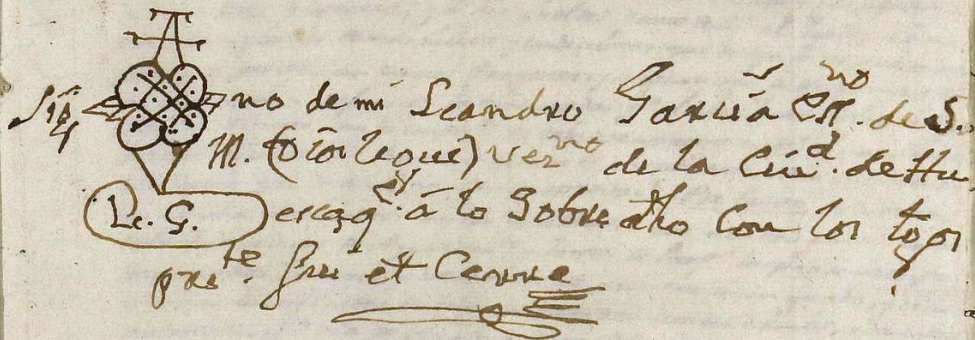 Sig no de mi Leandro Garcia Esno. de S.
M. (Dios le gue) vezno de la Ciud. de Hu
Le. G. escaq.e á lo Sobre dho con los tgos
prste. fui et Cerre